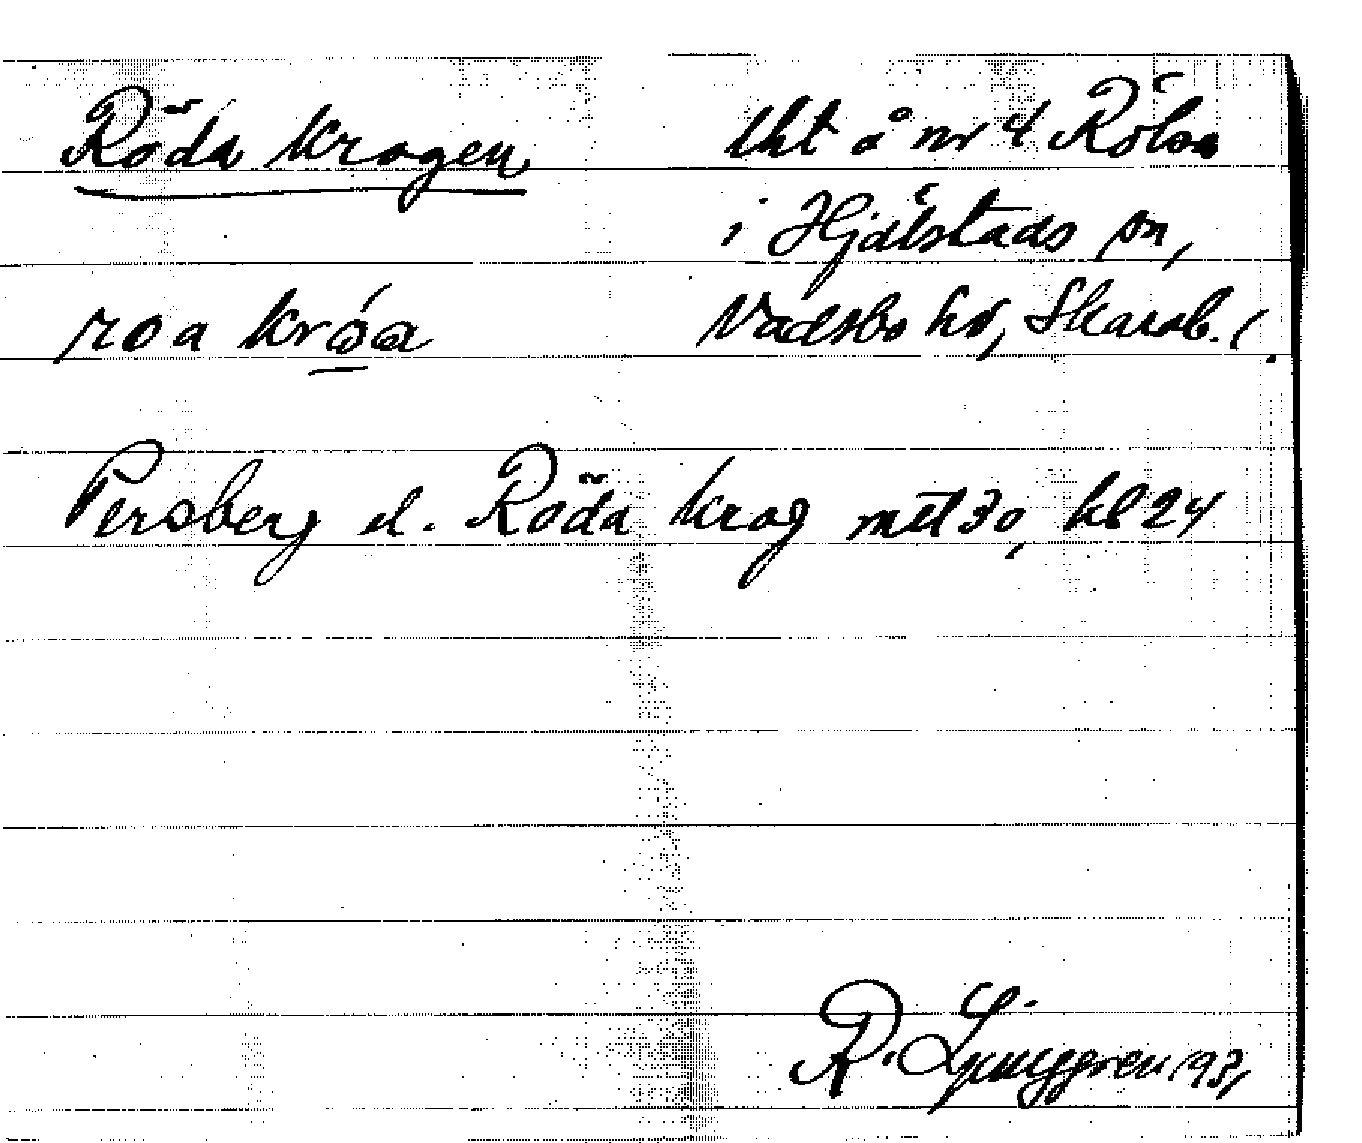 Röda krogen
lht å nr 4 Rölsa
i Hjälstads sn,
Vadsbo hd, Skarab. l.
roa króa
Persberg el. Röda krog mtl 30, hl 24
R. Ljunggren 1931